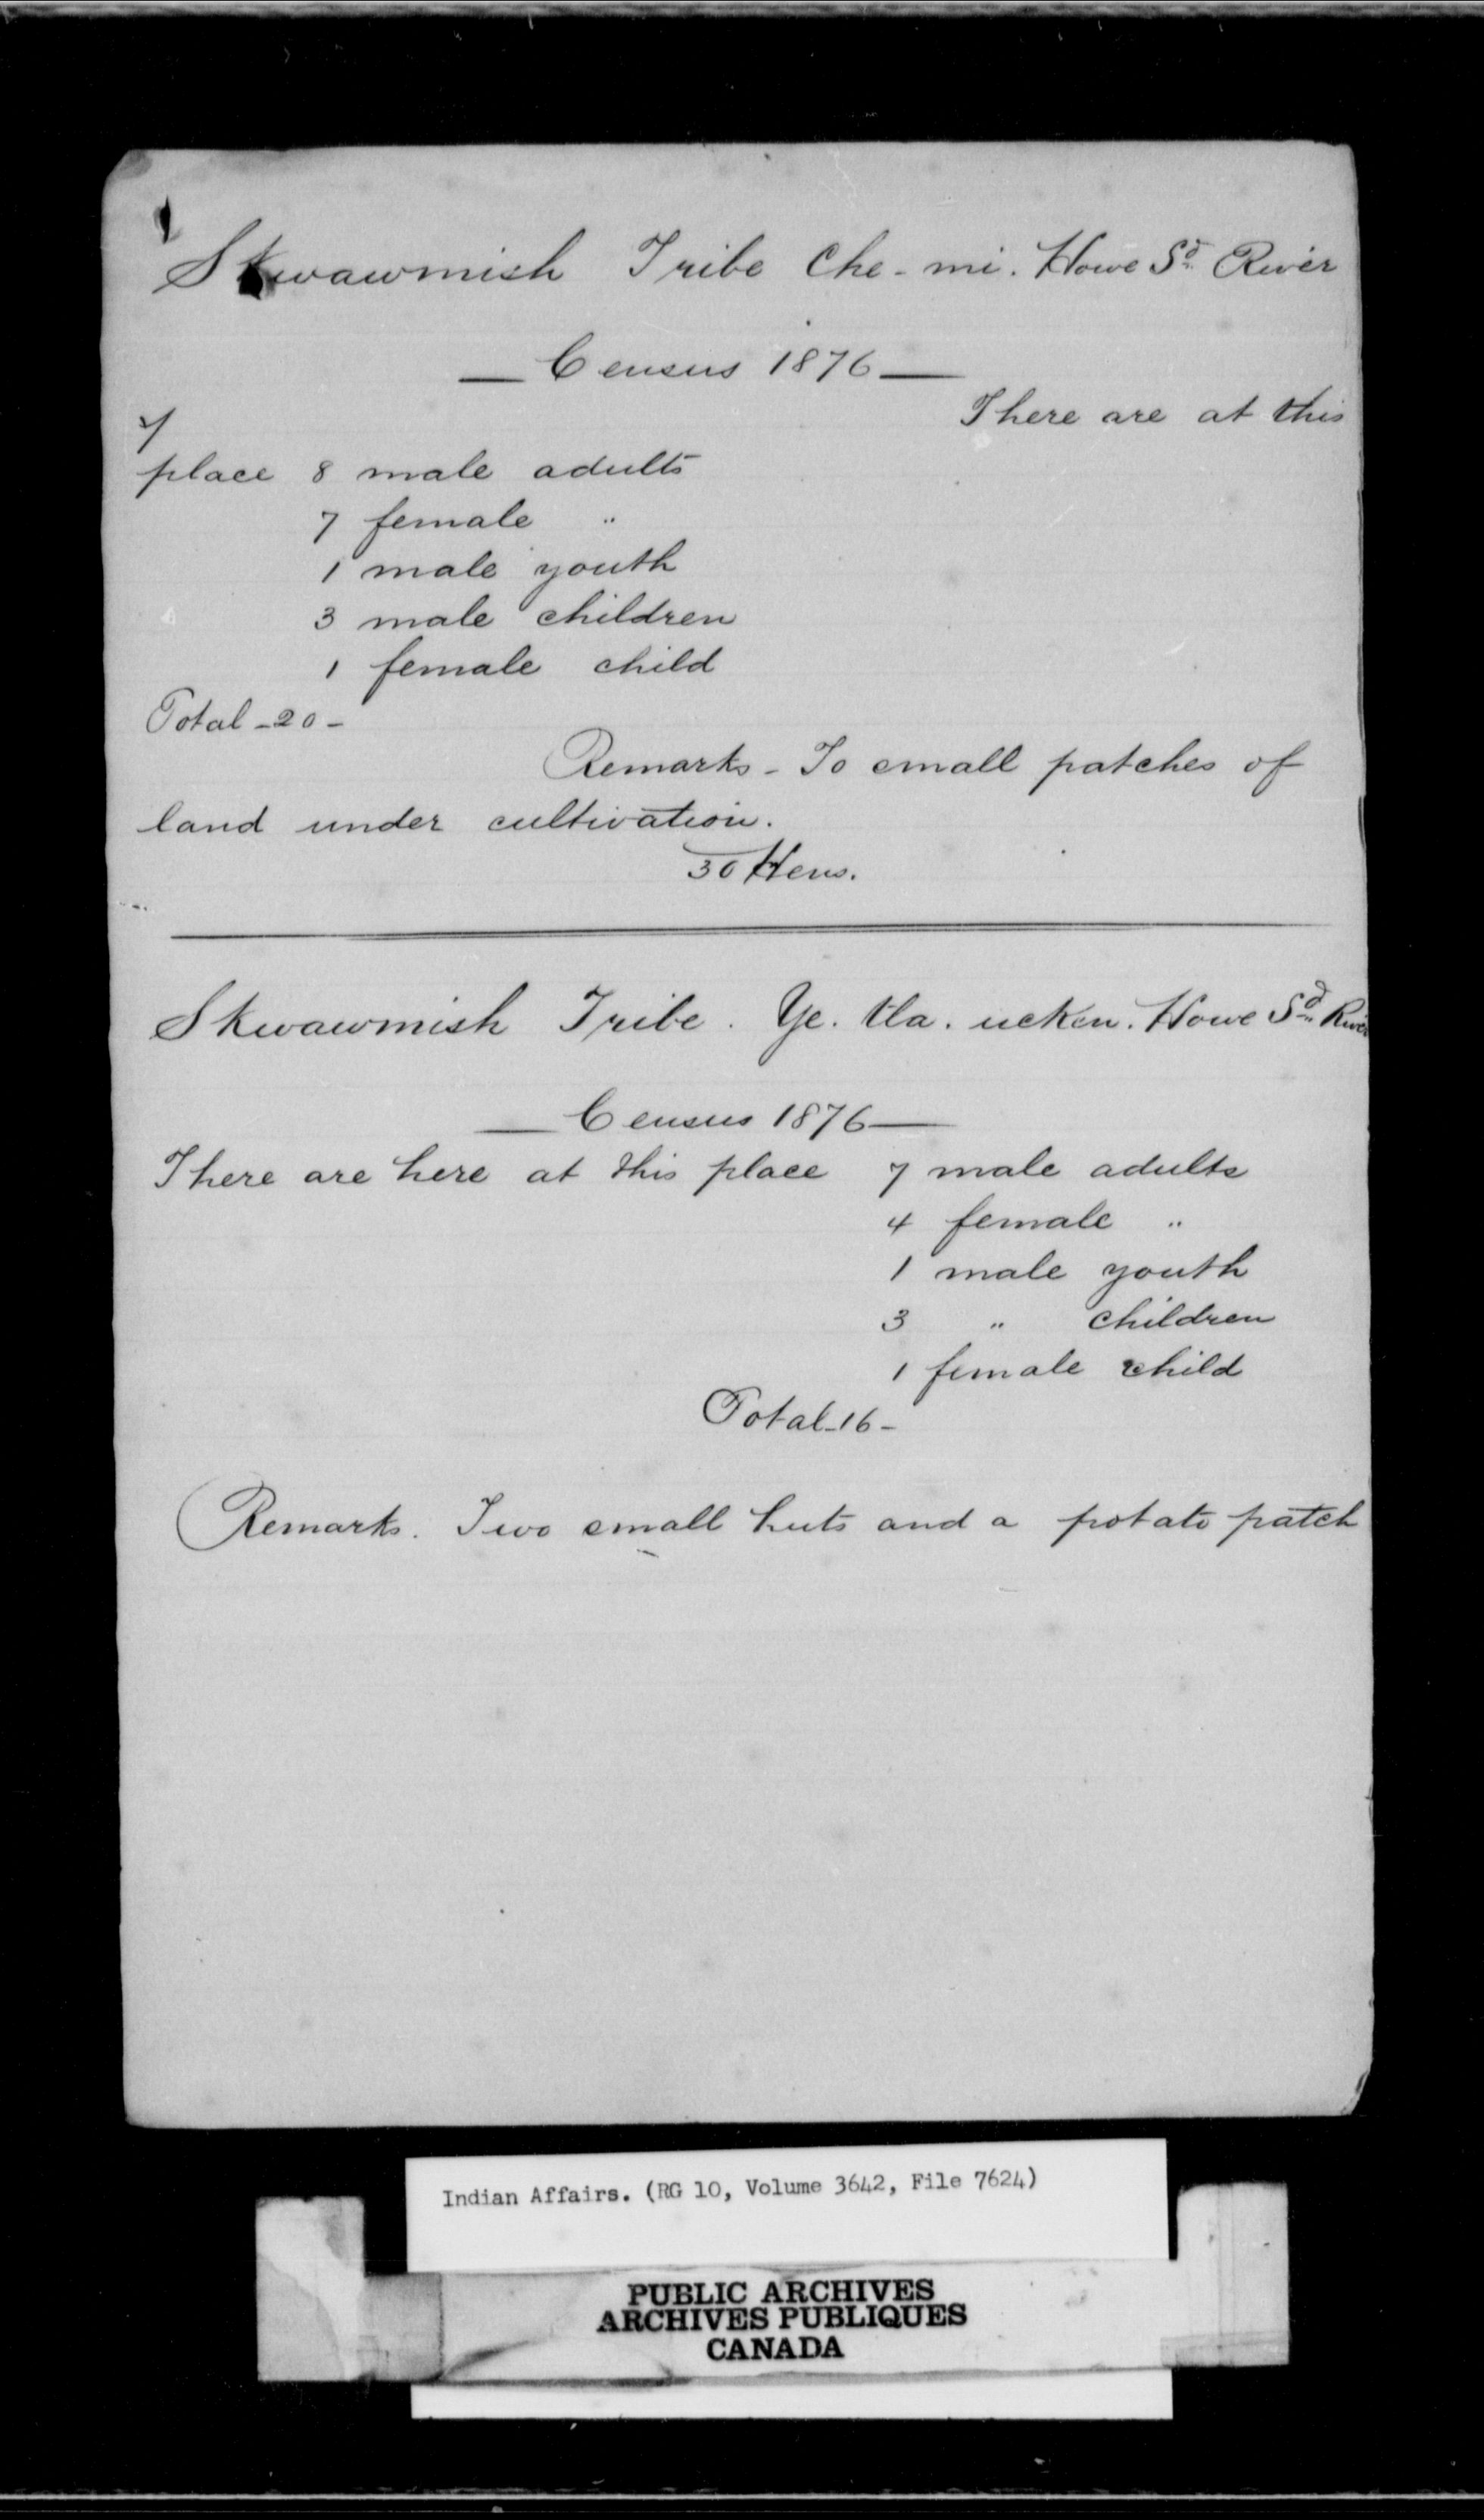 Skwawmish Tribe Che-mi. Howe Sd River
Census 1876
There are at this
place 8 male adults
7 female "
1 male youth
3 male children
1 female child
Total - 20 -
Remarks - To small patches of
land under cultivation.
30 Hens.
Skwawmish Tribe. Ye. tla. ucken. Howe Sd River
Census 1876
There are here at this place 7 male adults
4 female "
1 male youth
3 " children
1 female child
Total - 16 -
Remarks. Two small huts and a potato patch
Indian Affairs. (RG 10, Volume 3642, File 7624)
PUBLIC ARCHIVES
ARCHIVES PUBLIQUES
CANADA